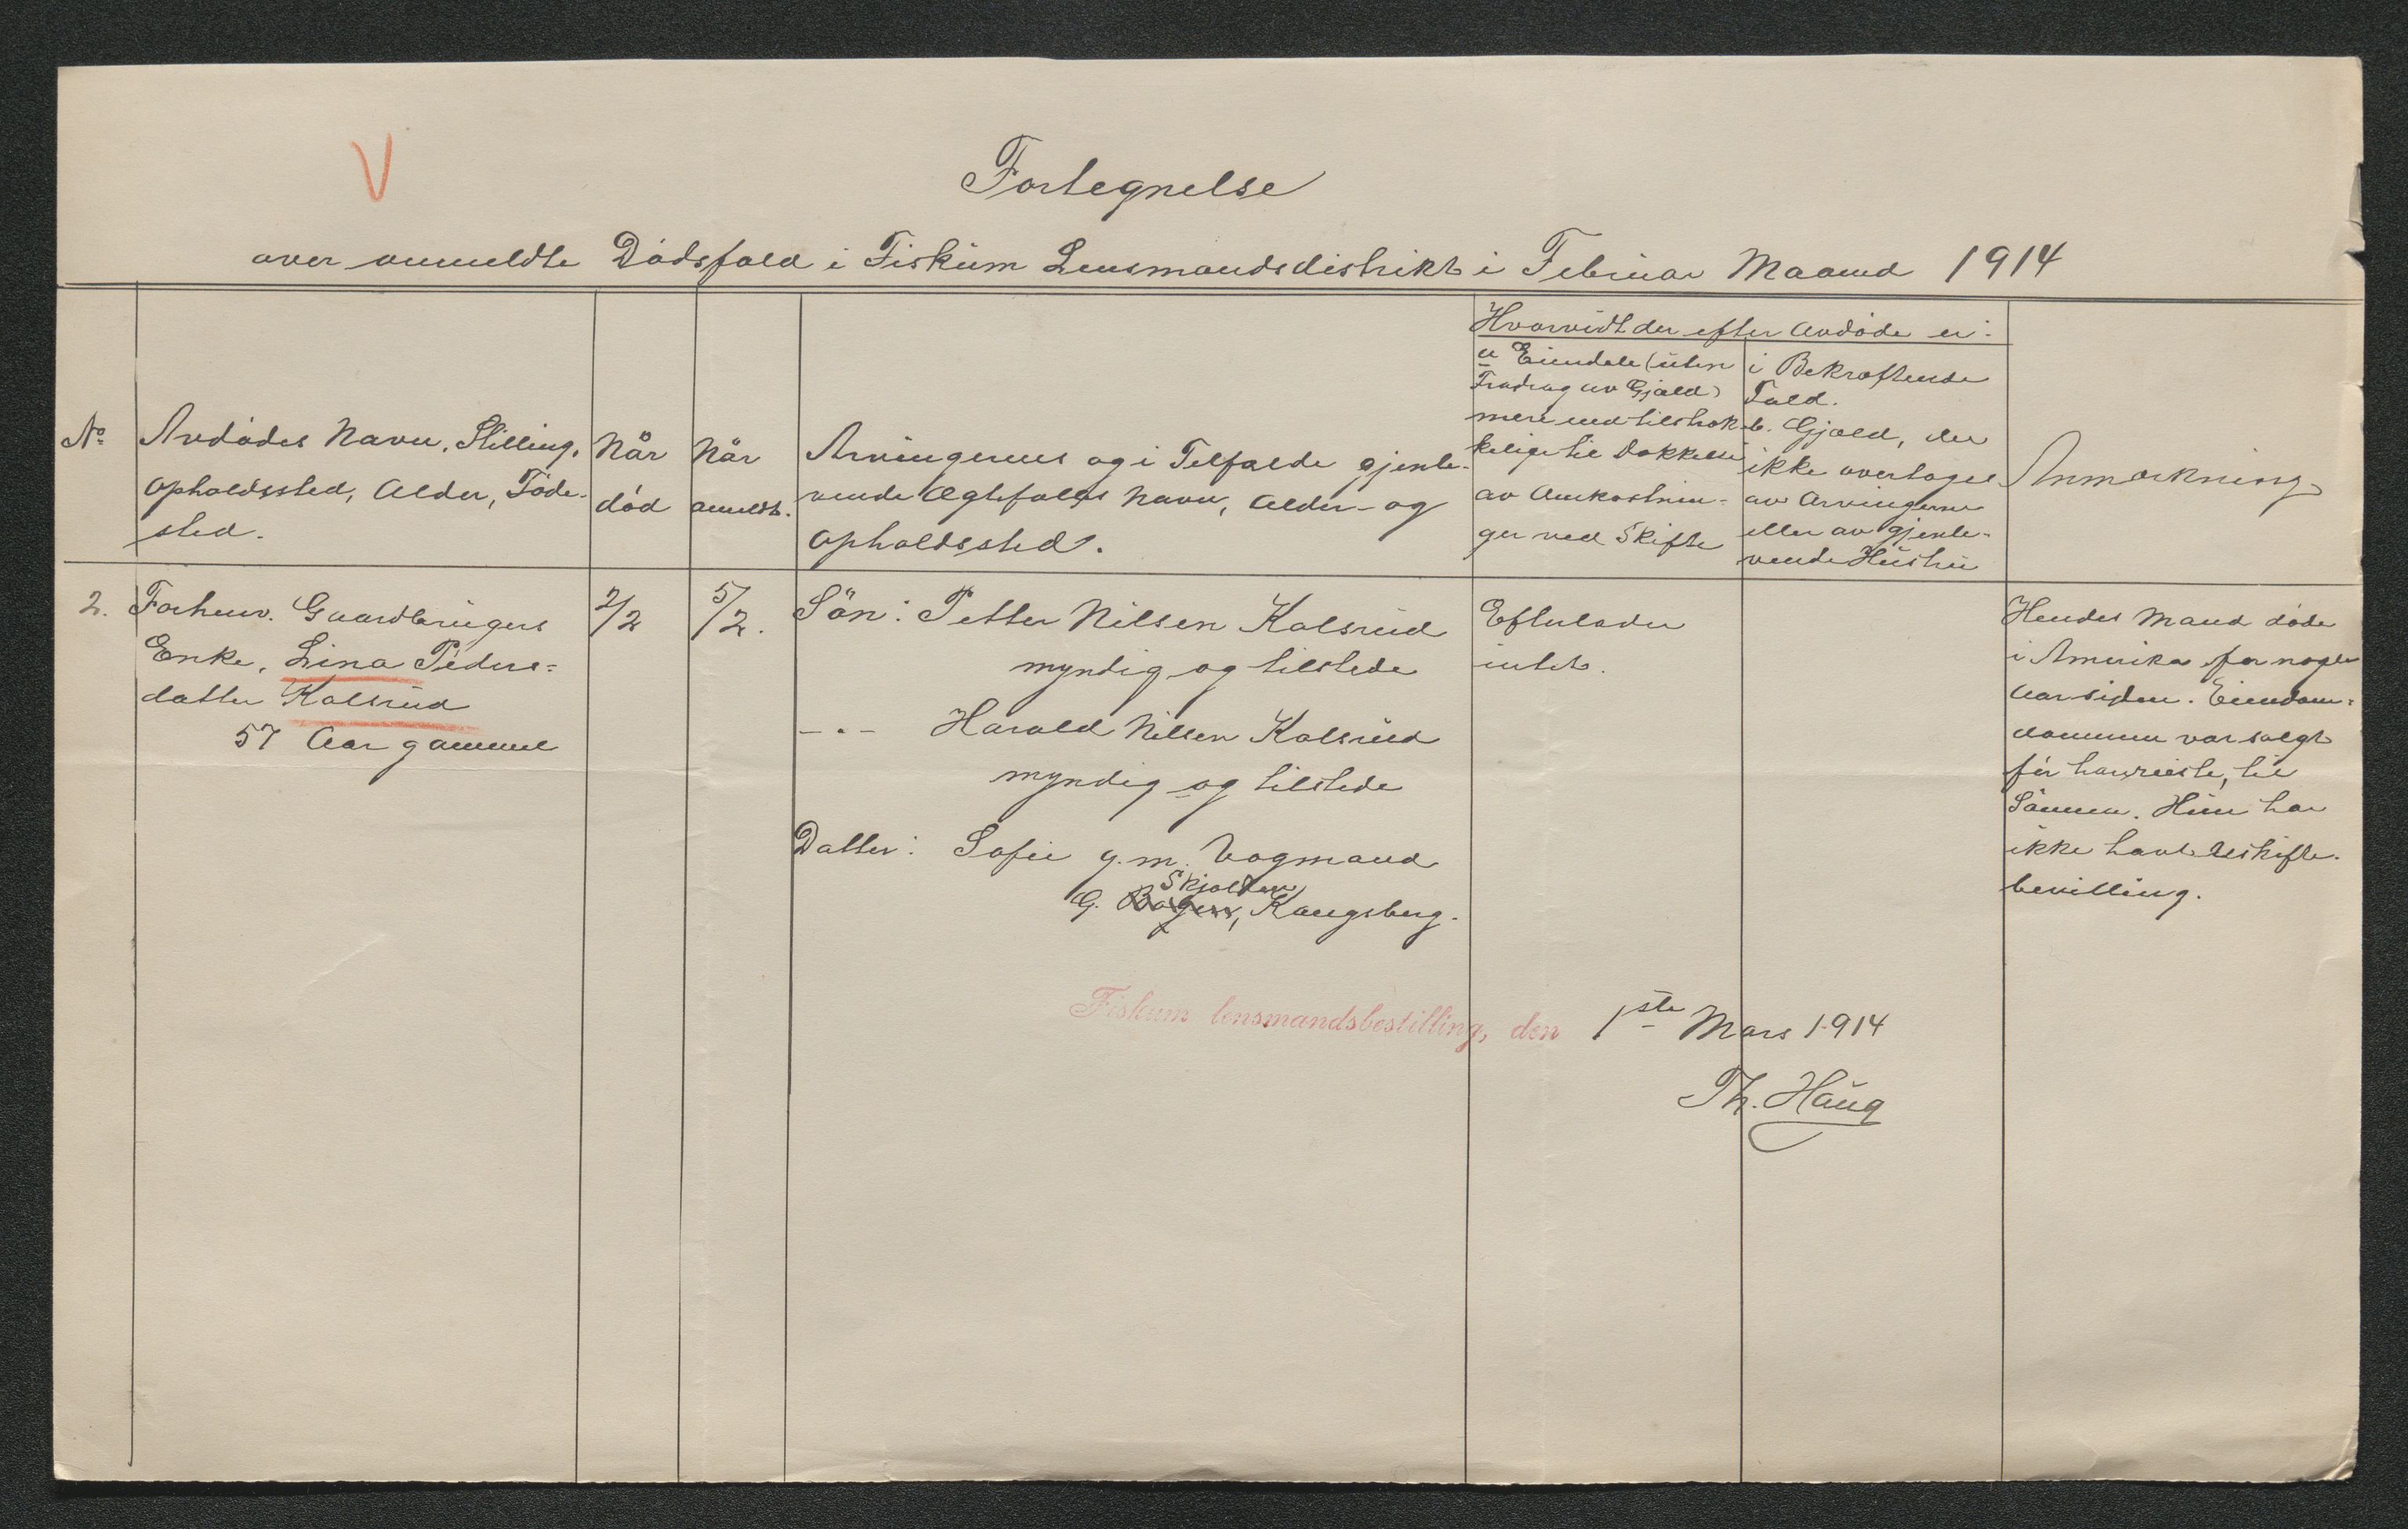 V
Fortegnelse
over anmeldte Dödsfald i Fiskum Lensmandsdistrikt i Februar Maaned 1914
No
Avdödes Navn, Stilling,
Opholdssted, Alder, Föde-
sted.
Når
död
Når
anmeldt.
Arvingernes og i Tilfælde gjenle-
vende Ægtefælles Navn, Alder og
Opholdssted.
Hvorvidt der efter Avdöde er:
a Eiendele (uten
Fradrag av Gjæld)
mere end tilstræk-
kelige til Dækkelse
av Omkostnin-
ger ved Skifte
i Bekræftende
Fald.
b. Gjæld, der
ikke overtages
av Arvingerne
eller av gjenle-
vende Hustru
Anmærkning
2.
Forhenv. Gaardbrugers
Enke, Lina Peders-
datter Kalsrud
57 Aar gammel
2/2
5/2.
Sön: Petter Nilsen Kalsrud
myndig og tilstede
-"- Harald Nilsen Kalsrud
myndig og tilstede
Datter: Sofie g.m. Vognmand
Skjolden
G. Kongsberg.
Efterlader
intet.
Hendes Mand döde
i Amerika for nogle
Aar siden. Eiendom-
dommen var solgt
för han reiste, til
Sönnen. Hun har
ikke havt Uskifte-
bevilling.
Fiskum lensmandsbestilling, den 1ste Mars 1914
Th. Haug